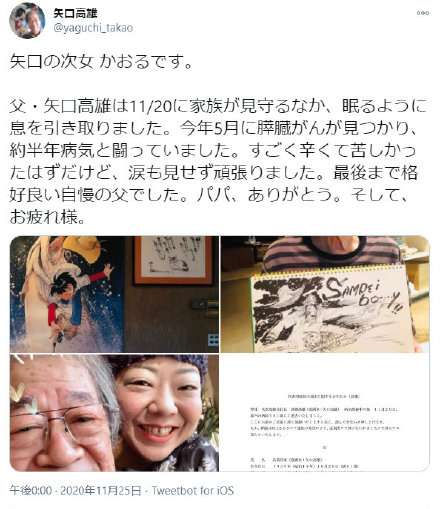 矢口高雄
@yaguchi_takao
矢口の次女 かおるです。
父・矢口高雄は11/20に家族が見守るなか、眠るように
息を引き取りました。今年5月に膵臓がんが見つかり、
約半年病気と闘っていました。すごく辛くて苦しかっ
たはずだけど、涙も見せず頑張りました。最後まで格
好良い自慢の父でした。パパ、ありがとう。そして、
お疲れ様。
午後0:00 · 2020年11月25日 · Tweetbot for iOS